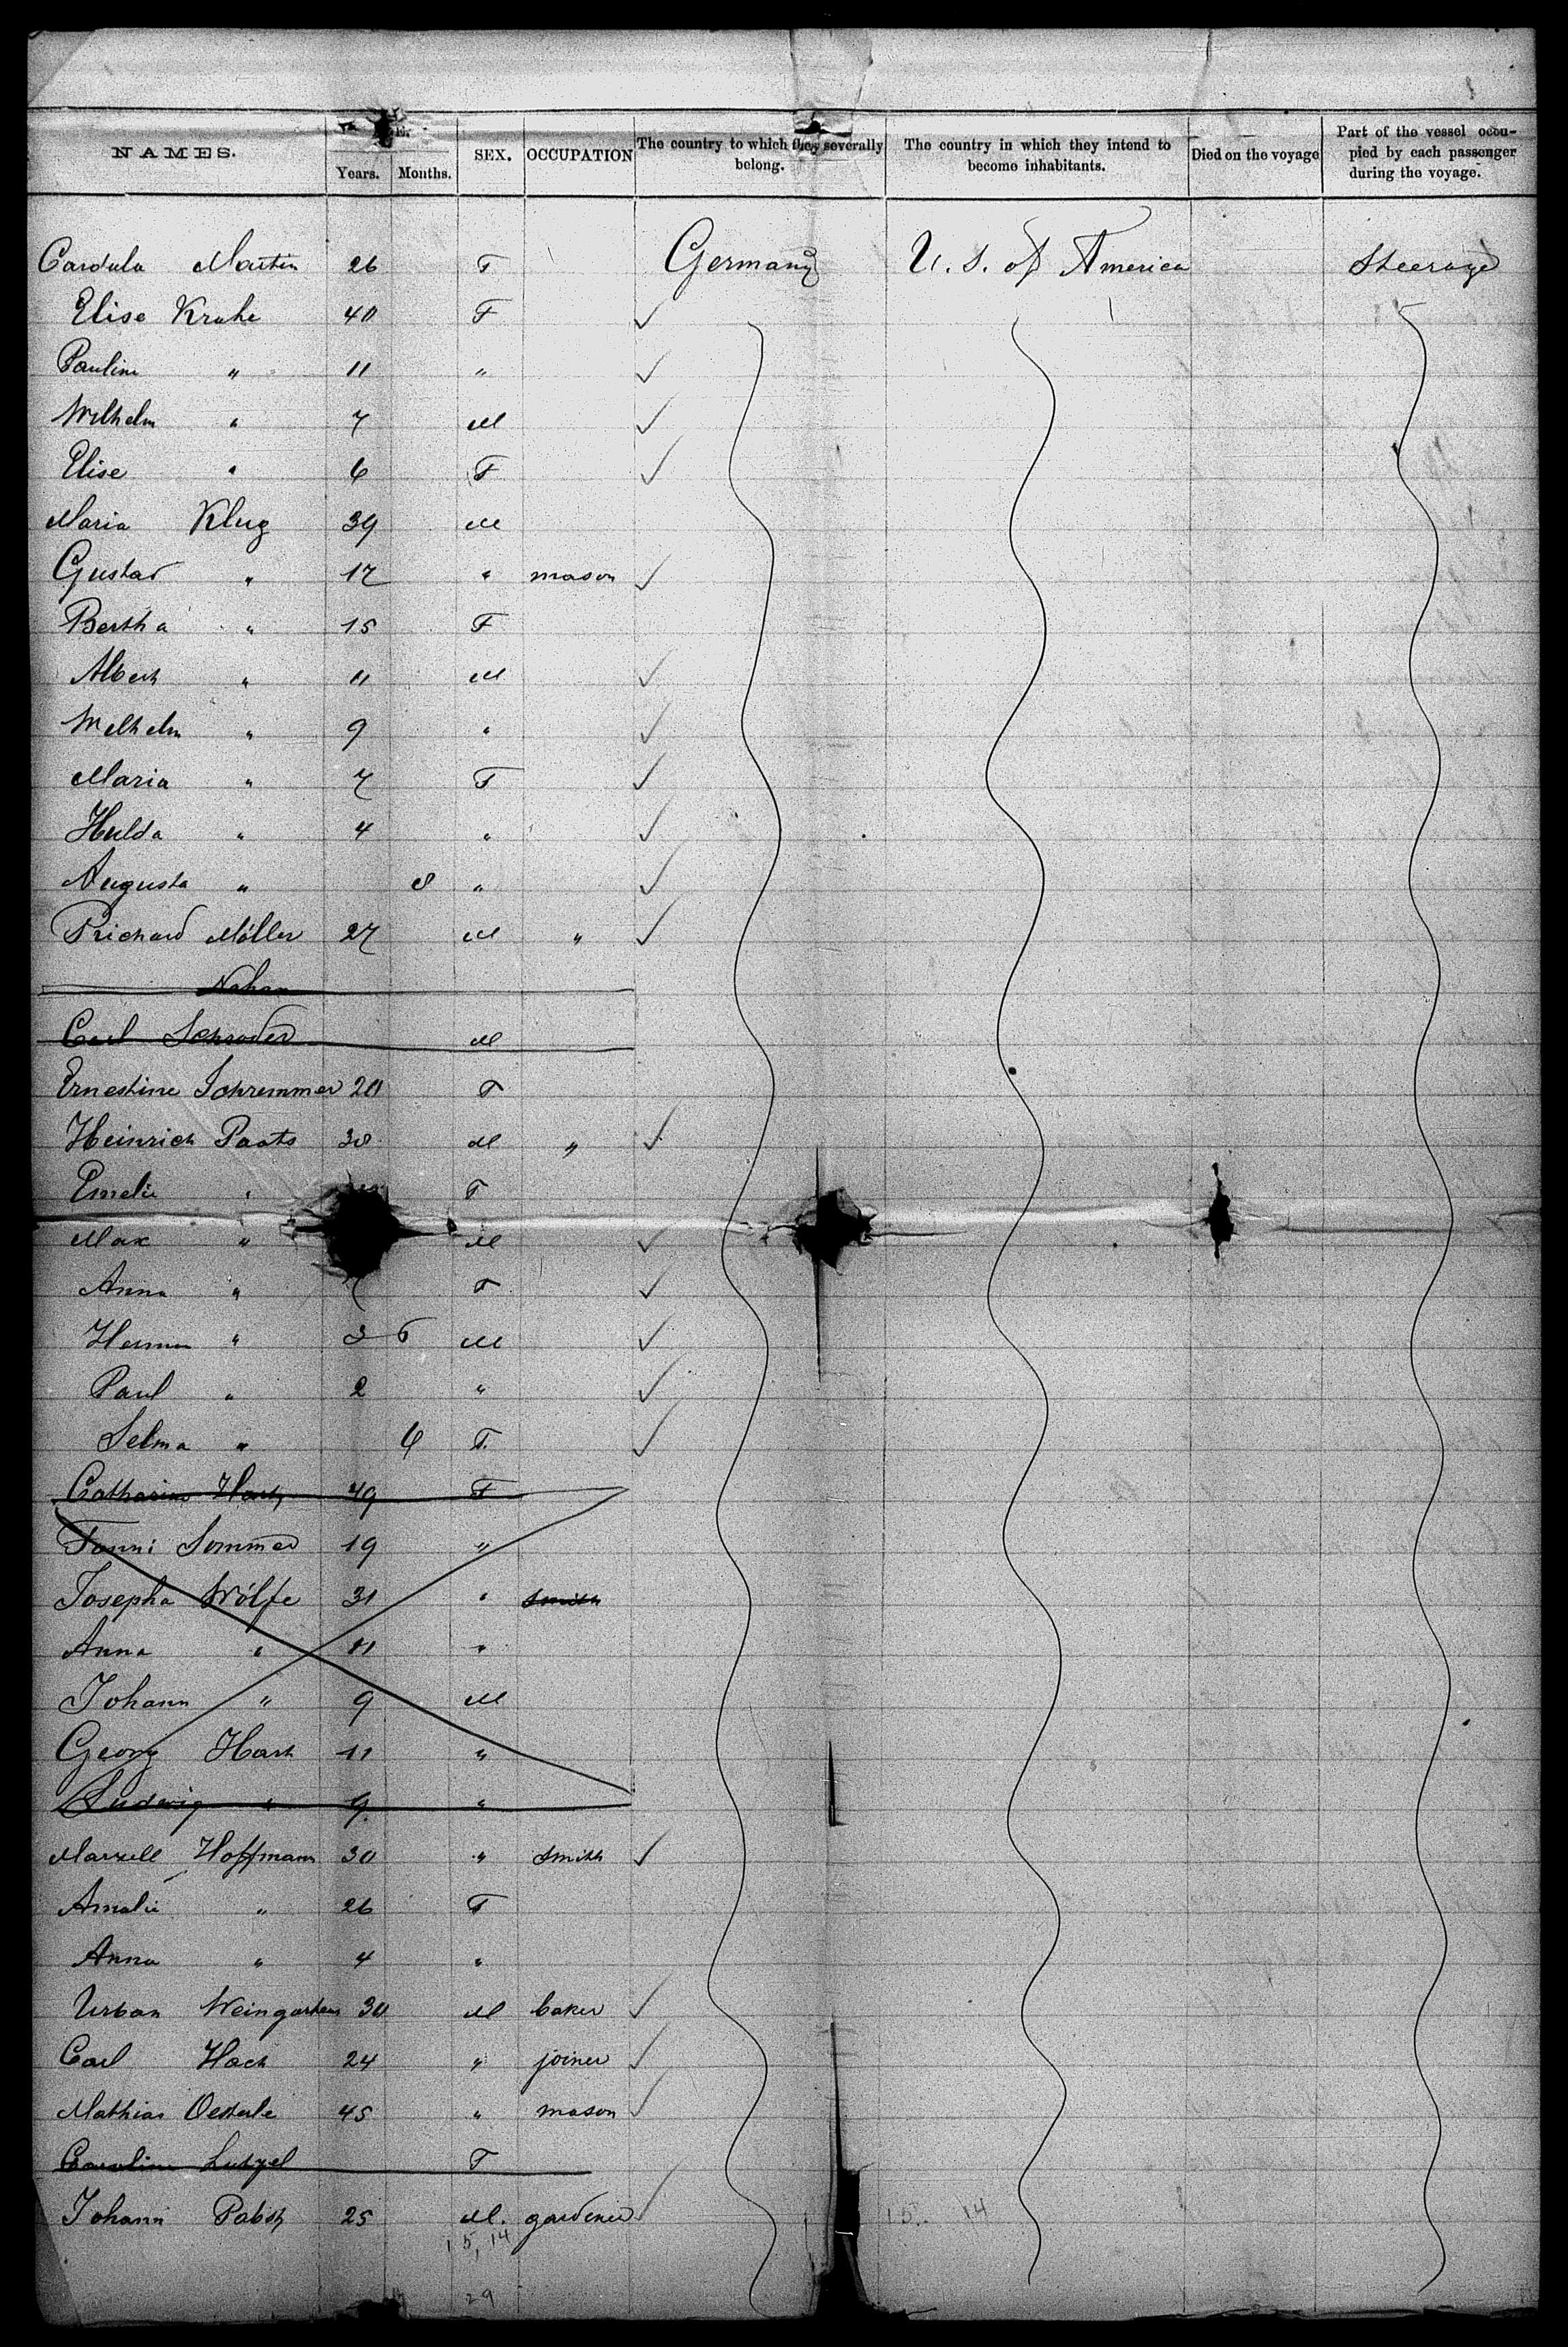 NAMES. Years. Months. SEX. OCCUPATION The country to which they severally belong. The country in which they intend to become inhabitants. Died on the voyage Part of the vessel occupied by each passenger during the voyage.
Cardula Martin 26 F Germany U. S. of America Steerage
Elise Krahe 40 F ✓
Pauline " 11 " ✓
Wilhelm " 7 M ✓
Elise " 6 F ✓
Maria Klug 39 M
Gustav " 17 " mason ✓
Bertha " 15 F
Albert " 11 M ✓
Wilhelm " 9 " ✓
Maria " 7 F ✓
Hulda " 4 " ✓
Augusta " 8 " ✓
Richard Möller 27 M " ✓
Carl Schroder M
Ernestine Schremmer 20 F
Heinrich Paats 30 M " ✓
Emelie " F
Max " M ✓
Anna " 7 F ✓
Herman " 3 M ✓
Paul " 2 " ✓
Selma " 6 F. ✓
Catharine Hart 49 F
Fanni Sommer 19 "
Josepha Wölfe 31 " smith
Anna " 11 "
Johann " 9 M
Georg Hart 11 "
Ludwig " 9 "
Marzell Hoffmann 30 " smith ✓
Amalie " 26 F
Anna " 4 "
Urban Weingarten 30 M baker ✓
Carl Hock 24 " joiner ✓
Mathias Oesterle 45 " mason ✓
Caroline Lutzel F
Johann Pabst 25 M. gardener ✓
15, 14 15. 14
29